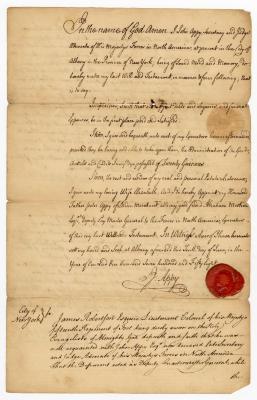 In the name of God Amen. I John Appy Secretary and Judge
Advocate of His Majestys Forces in North America, at present in the City of
Albany in the Province of New York, being of Sound Mind and Memory, do
hereby make my last Will and Testament in manner & form following, that
is to say.
Imprimis, I will that my just Debts and Funeral
Expences, be in the first place paid and Satisfied.
Item, I give and bequeath unto each of my Executors herein after
they being able to take upon them the Administration of my Goods,
Chattels and the Sum of Twenty Guineas
Item, the rest and residue of my real and personal Estate whatsoever,
I give unto my loving Wife Elizabeth. And I do hereby appoint my Honoured
Father John Appy of and Abraham Mortier
Esqr. Deputy Pay Master General to the Forces in North America, Executors
of this my last Will and Testament. In Witness whereof I have hereunto
set my hand and Seal, at Albany aforesaid this Tenth day of June, in the
Year of Our Lord One thousand Seven hundred and Fifty eight
J. Appy
City of
New York
James Robertson Esquire Lieutenant Colonel of his Majestys
Fifteenth Regiment of Foot being duely sworn on the Holy
Evangelists of Almighty God deposeth and saith that he was
well acquainted with John Appy Esqr. late deceased late Secretary
and Judge Advocate of his Majestys Forces in North America
That the Deponent acted as Deputy Quartermaster General while
the